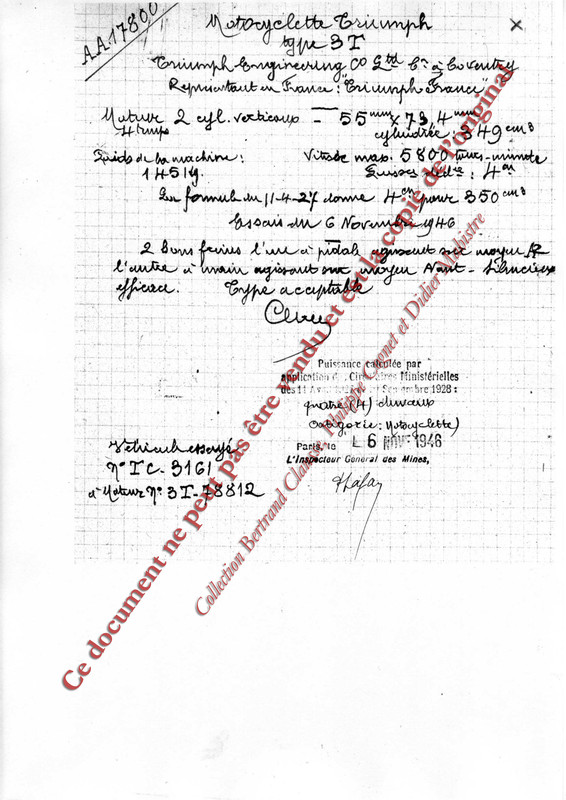 AA17800
Motocyclette Triumph
type 3T
Triumph Engineering Co Ltd à Coventry
Représentant en France: "Triumph France"
Moteur 2 cyl. verticaux - 55 mm x 73,4 mm
4 temps cylindrée: 349 cm3
Poids de la machine: Vitesse max. 5800 tours-minute
145 kg. 4 cv
La formule du 11-4-27 donne 4 cv pour 350 cm3
Essais du 6 Novembre 1946
2 bons freins l'une à pédale agissant sur moyeu AR
l'autre à main agissant sur moyeu Avant - Silencieux
efficace. Type acceptable
Puissance calculée par
application des Circulaires Ministérielles
des 11 Septembre 1928:
quatre (4) chevaux
Catégorie: Motocyclette)
Paris, le 6 NOV 1946
L'Inspecteur Général des Mines,
Véhicule essayé
N° TC-3161
à Moteur N° 3T-78812
Ce document ne peut pas être vendu et est la copie de l'original
Collection Bertrand Clausse, Philippe Cuonet et Didier Mahistre